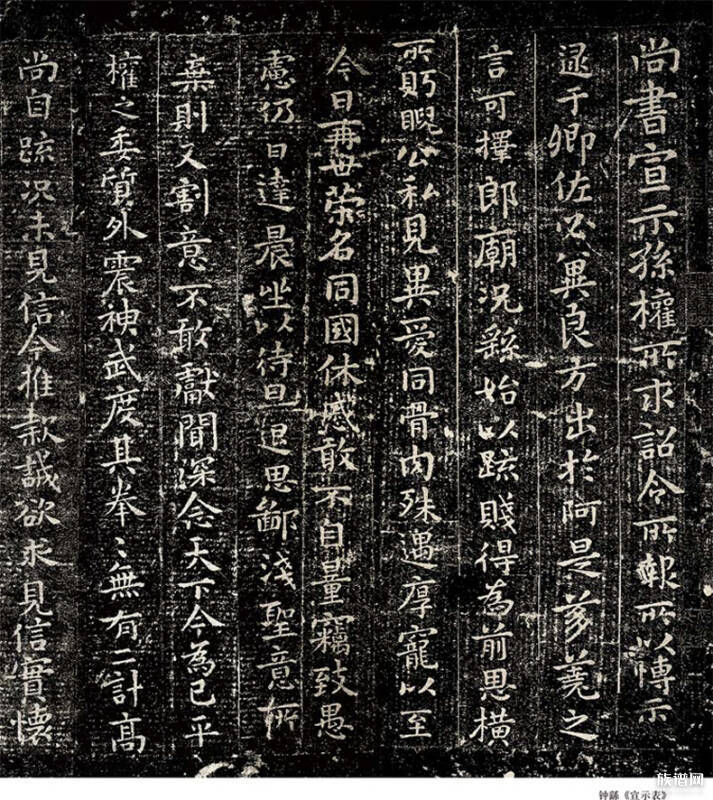 尚書宣示孫權所求詔令所報所以博示
逮于卿佐必異良方出於阿是芻蕘之
言可擇郎廟況繇始以疏賤得為前恩橫
所眄睨公私見異愛同骨肉殊遇厚寵以至
今日再世榮名同國休慼敢不自量竊致愚
慮仍日達晨坐以待旦退思鄙淺聖意所
棄則又割意不敢獻聞深念天下今為已平
權之委質外震神武度其拳〻無有二計高
尚自疏況未見信今推款誠欲求見信實懷
钟繇《宣示表》
族谱网